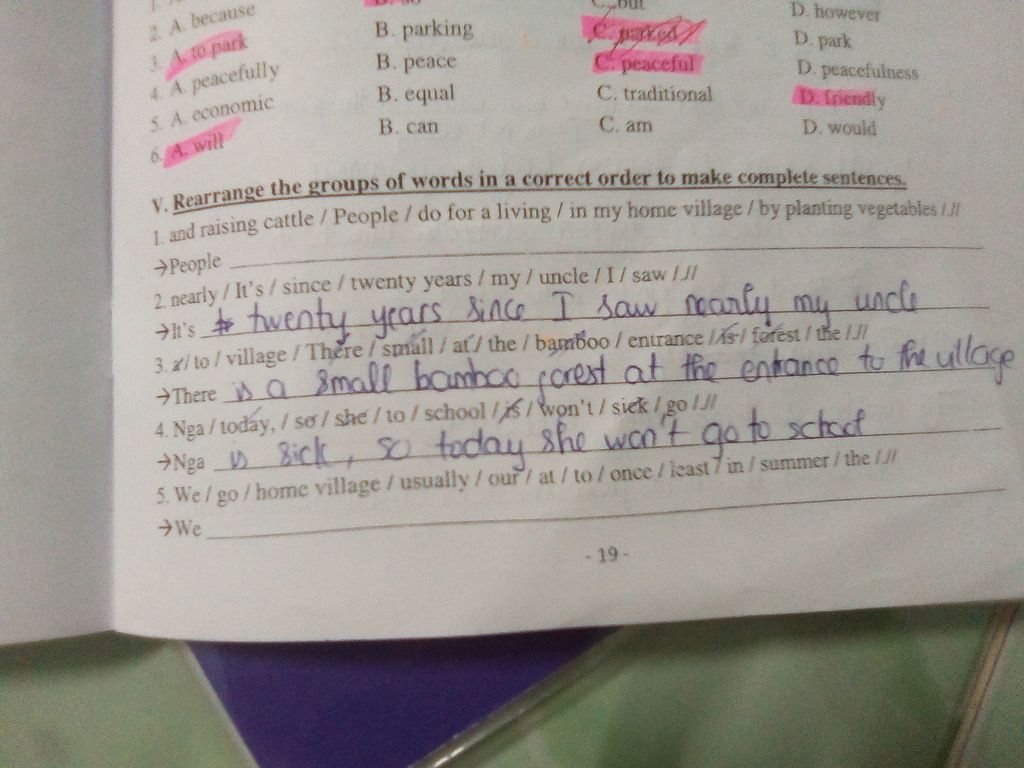 2. A. because C. but D. however
3. A. to park B. parking C. parked D. park
4. A. peacefully B. peace C. peaceful D. peacefulness
5. A. economic B. equal C. traditional D. friendly
6. A. will B. can C. am D. would
V. Rearrange the groups of words in a correct order to make complete sentences.
1. and raising cattle / People / do for a living / in my home village / by planting vegetables /.//
→People
2. nearly / It's / since / twenty years / my / uncle / I / saw /.//
→It's twenty years since I saw nearly my uncle
3. a/ to / village / There / small / at / the / bamboo / entrance / is / forest / the /.//
→There is a small bamboo forest at the entrance to the village
4. Nga / today, / so / she / to / school / is / won't / sick / go /.//
→Nga is sick, so today she won't go to school
5. We / go / home village / usually / our / at / to / once / least / in / summer / the /.//
→We
- 19 -